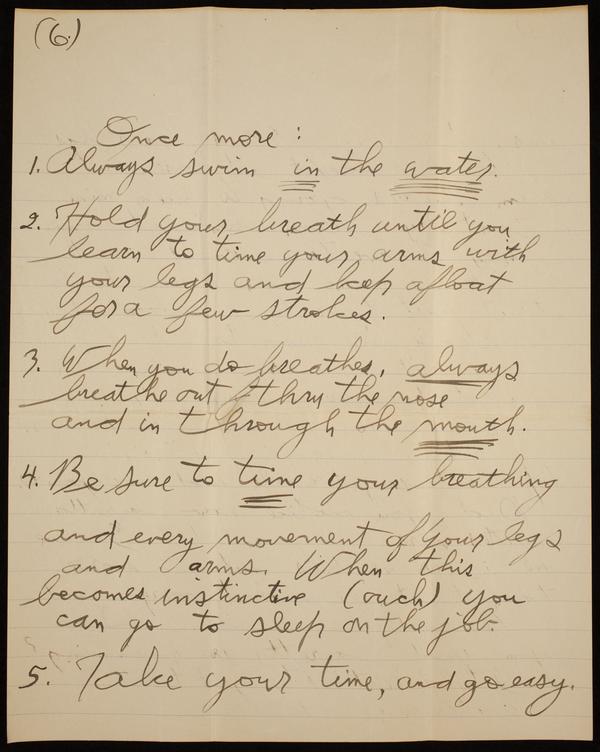 (6.)
Once more:
1. Always swim in the water.
2. Hold your breath until you
learn to time your arms with
your legs and keep afloat
for a few strokes.
3. When you do breathe, always
breathe out thru the nose
and in through the mouth.
4. Be sure to time your breathing
and every movement of your legs
and arms. When this
becomes instinctive (ouch) you
can go to sleep on the job.
5. Take your time, and go easy.